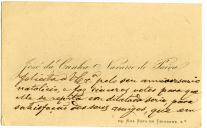 José da Cunha Navarro de Paiva
felicita V. Exª pelo seu anniversario
natalicio, e faz sinceros votos para que
elle se repita com dilatados annos para
satisfação dos seus amigos que em